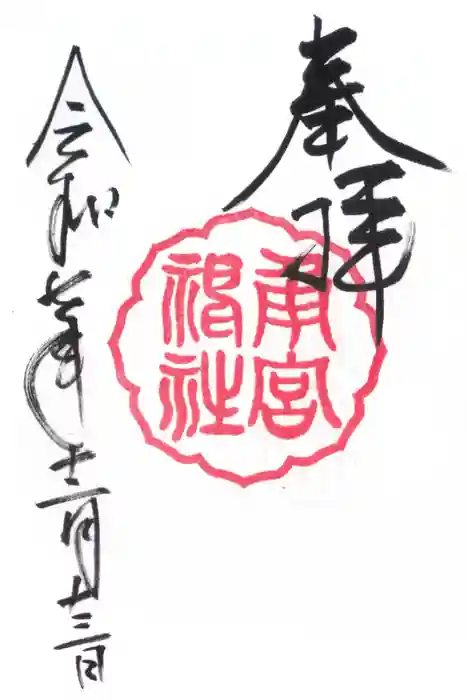 奉拝
角宮
神社
令和七年十二月十三日